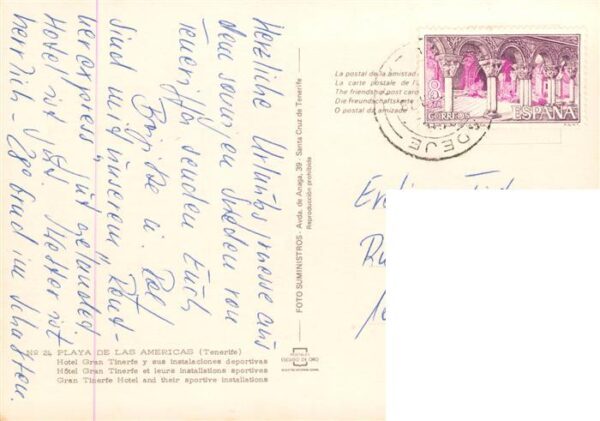 Herzliche Urlaubsgrüsse aus
dem sonnigen Süden von
Teneriffa senden Euch
Brigitte u.
Sind mit unserem "Rent-
nerexpress" gut gelandet
Hotel ist gut, Wetter ist
herrlich - 29 Grad im Schatten.
Nº 24 PLAYA DE LAS AMERICAS (Tenerife)
Hotel Gran Tinerfe y sus instalaciones deportivas
Hôtel Gran Tinerfe et leurs installations sportives
Gran Tinerfe Hotel and their sportive installations
FOTO SUMINISTROS - Avda. de Anaga, 39 - Santa Cruz de Tenerife
Reproducción prohibida
POSTALES
ESCUDO DE ORO
La postal de la amistad
La carte postale de l'
The friendship post card
Die freundschaftskarte
O postal da amizade
8
PTA
CORREOS
ESPAÑA
ADEJE